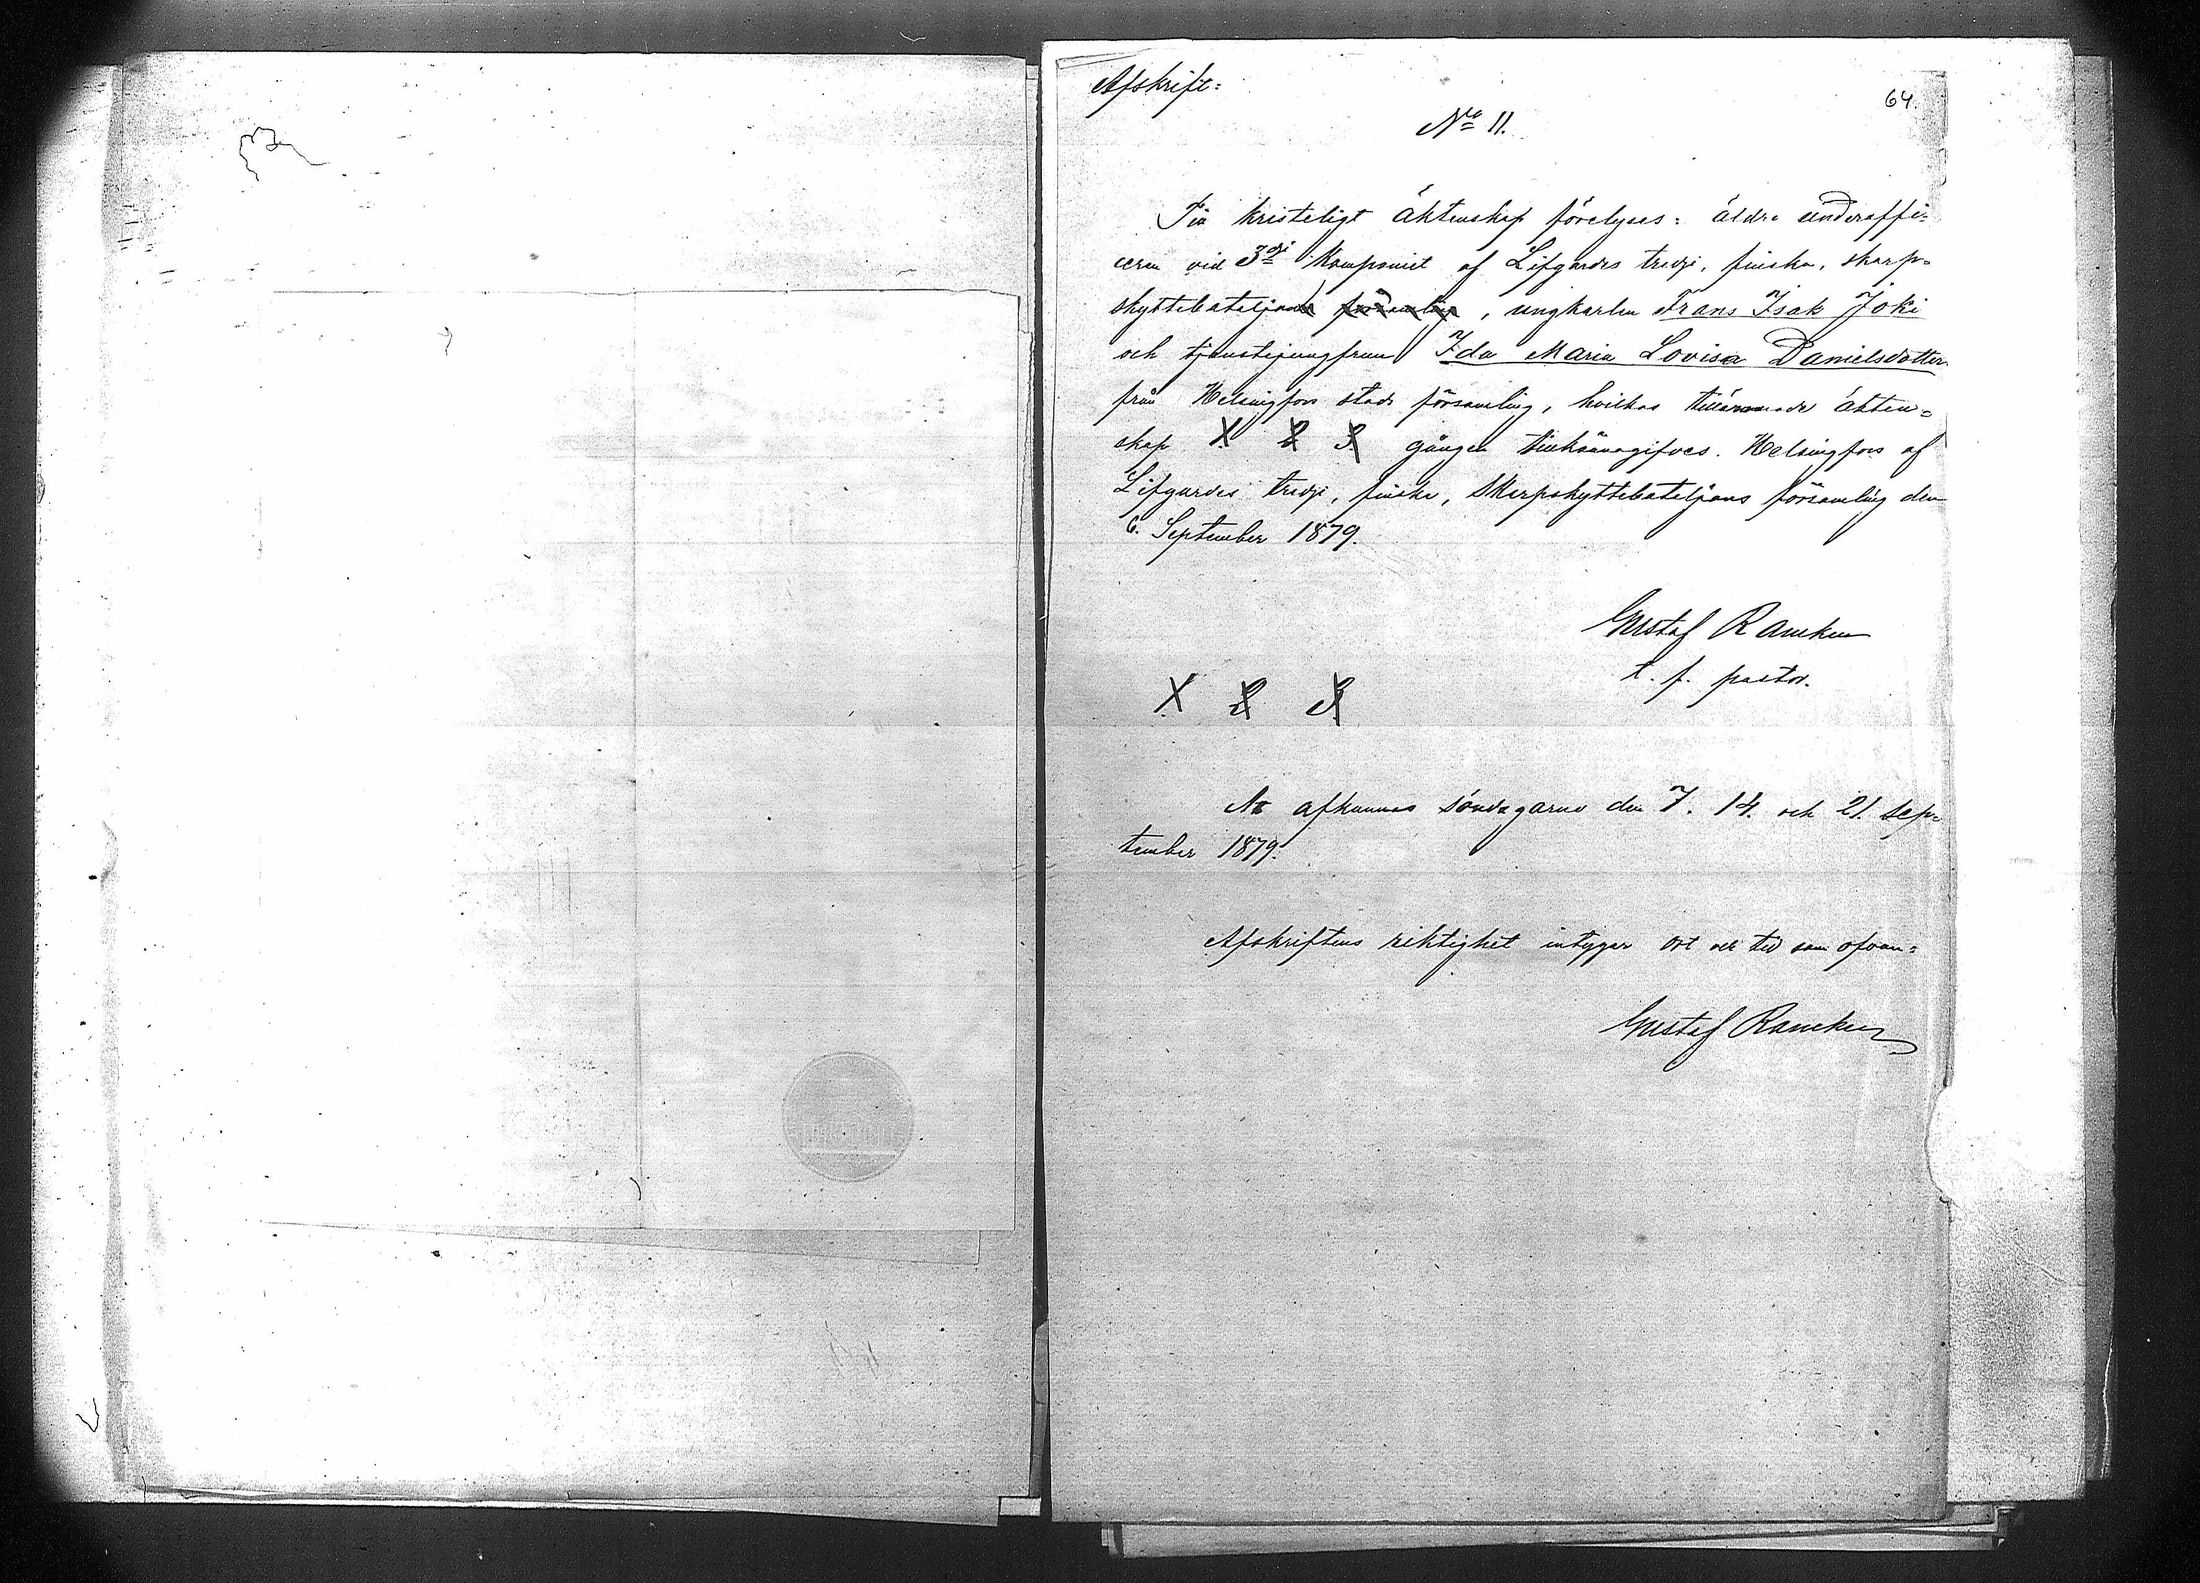 Afskrift:
64.
No 11.
Till kristeligt äktenskap förelyses: äldre underoffi-
ceren vid 3dje Kompaniet af Lifgardes tredje, finska, skarp-
skyttebataljon, ungkarlen Frans Isak Joki
och tjenstejungfrun Ida Maria Lovisa Danielsdotter
från Helsingfors stads församling, hvilkas tillärnade äkten-
skap 1. 2. 3. gången tillkännagifves. Helsingfors af
Lifgardes tredje, finska, Skarpskyttebataljons församling den
6. September 1879.
Gustaf Rancken
t. f. pastor.
1. 2. 3.
Att afkunnas söndagarne den 7. 14. och 21. Sep-
tember 1879.
Afskriftens riktighet intygar ort och tid som ofvan:
Gustaf Rancken